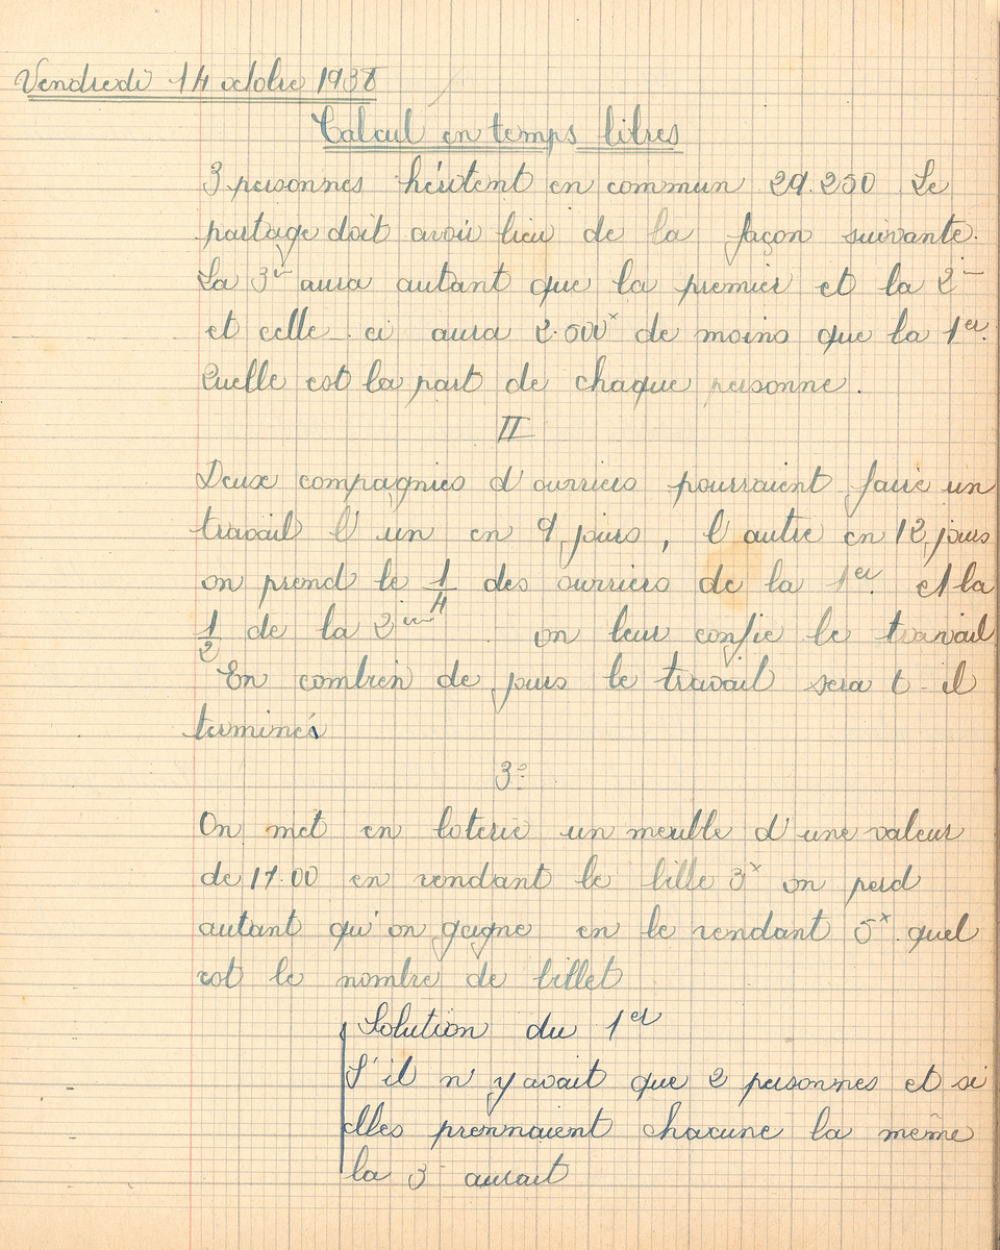 Vendredi 14 octobre 1938
Calcul en temps libres
3 personnes héritent en commun 29.250 Le
partage doit avoir lieu de la façon suivante.
La 3e aura autant que la premier et la 2e
et celle-ci aura 2.500x de moins que la 1er.
Quelle est la part de chaque personne.
II
Deux compagnies d'ouvriers pourraient faire un
travail l'un en 9 jours, l'autre en 12 jours
on prend le 1/4 des ouvriers de la 1er. et la
1/2 de la 2ieme on leur confie le travail
En combien de jours le travail sera t-il
terminés
3°
On met en loterie un meuble d'une valeur
de 17.00 en vendant le bille 3x on perd
autant qu'on gagne en le vendant 5x. quel
est le nombre de billet
Solution du 1er
S'il n'y avait que 2 personnes et si
elles prennaient chacune la même
la 3 aurait